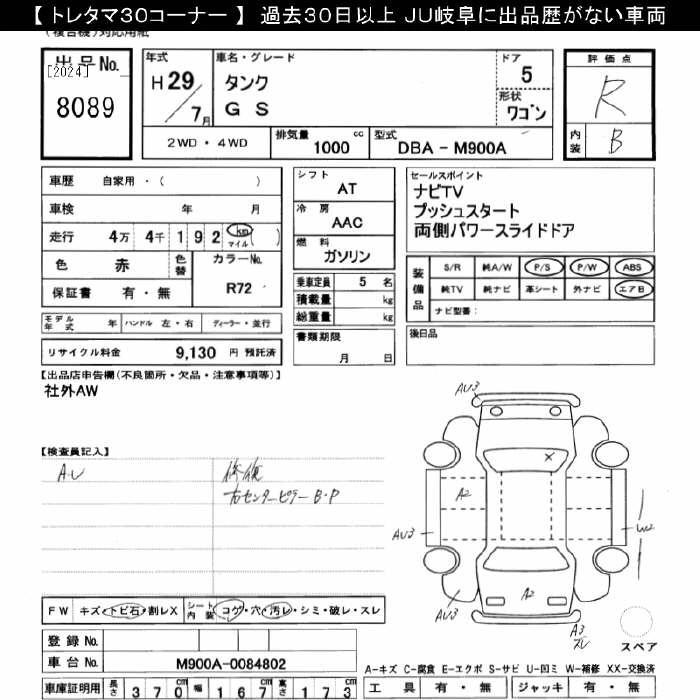 【 トレタマ30コーナー 】 過去30日以上 JU岐阜に出品歴がない車両
(複合機)対応用紙
出品No.
[2024]
8089
年式
H 29 / 7月
車名・グレード
タンク
G S
ドア
5
形状
ワゴン
評価点
R
内装
B
2WD ・ 4WD
排気量 cc
1000
型式
DBA - M900A
車歴 自家用 ・ ( )
車検 年 月
走行 4万 4千 1 9 2 km マイル ( )
色 赤 色替
カラーNo.
R72
保証書 有 ・ 無
シフト
AT
冷房
AAC
燃料
ガソリン
乗車定員 5 名
積載量 kg
総重量 kg
書類期限
月 日
セールスポイント
ナビTV
プッシュスタート
両側パワースライドドア
装備品
S/R 純A/W P/S P/W ABS
純TV 純ナビ 革シート 外ナビ エアB
ナビ型番:
後日品
モデル年式 年 ハンドル 左・右 ディーラー・並行
リサイクル料金 9,130 円 預託済
【出品店申告欄(不良箇所・欠品・注意事項等)】
社外AW
【検査員記入】
A・U
修復
右センターピラー B・P
AU3
A2
AU3
W2
AU3
A2
A3
スペア
FW キズ・トビ石・割レX シート内装 コゲ・穴・汚レ・シミ・破レ・スレ
登録 No.
車台 No. M900A-0084802
車庫証明用 長さ 370cm 幅 167cm 高さ 173cm
A-キズ C-腐食 E-エクボ S-サビ U-凹ミ W-補修 XX-交換済
工具 有 ・ 無 ジャッキ 有 ・ 無